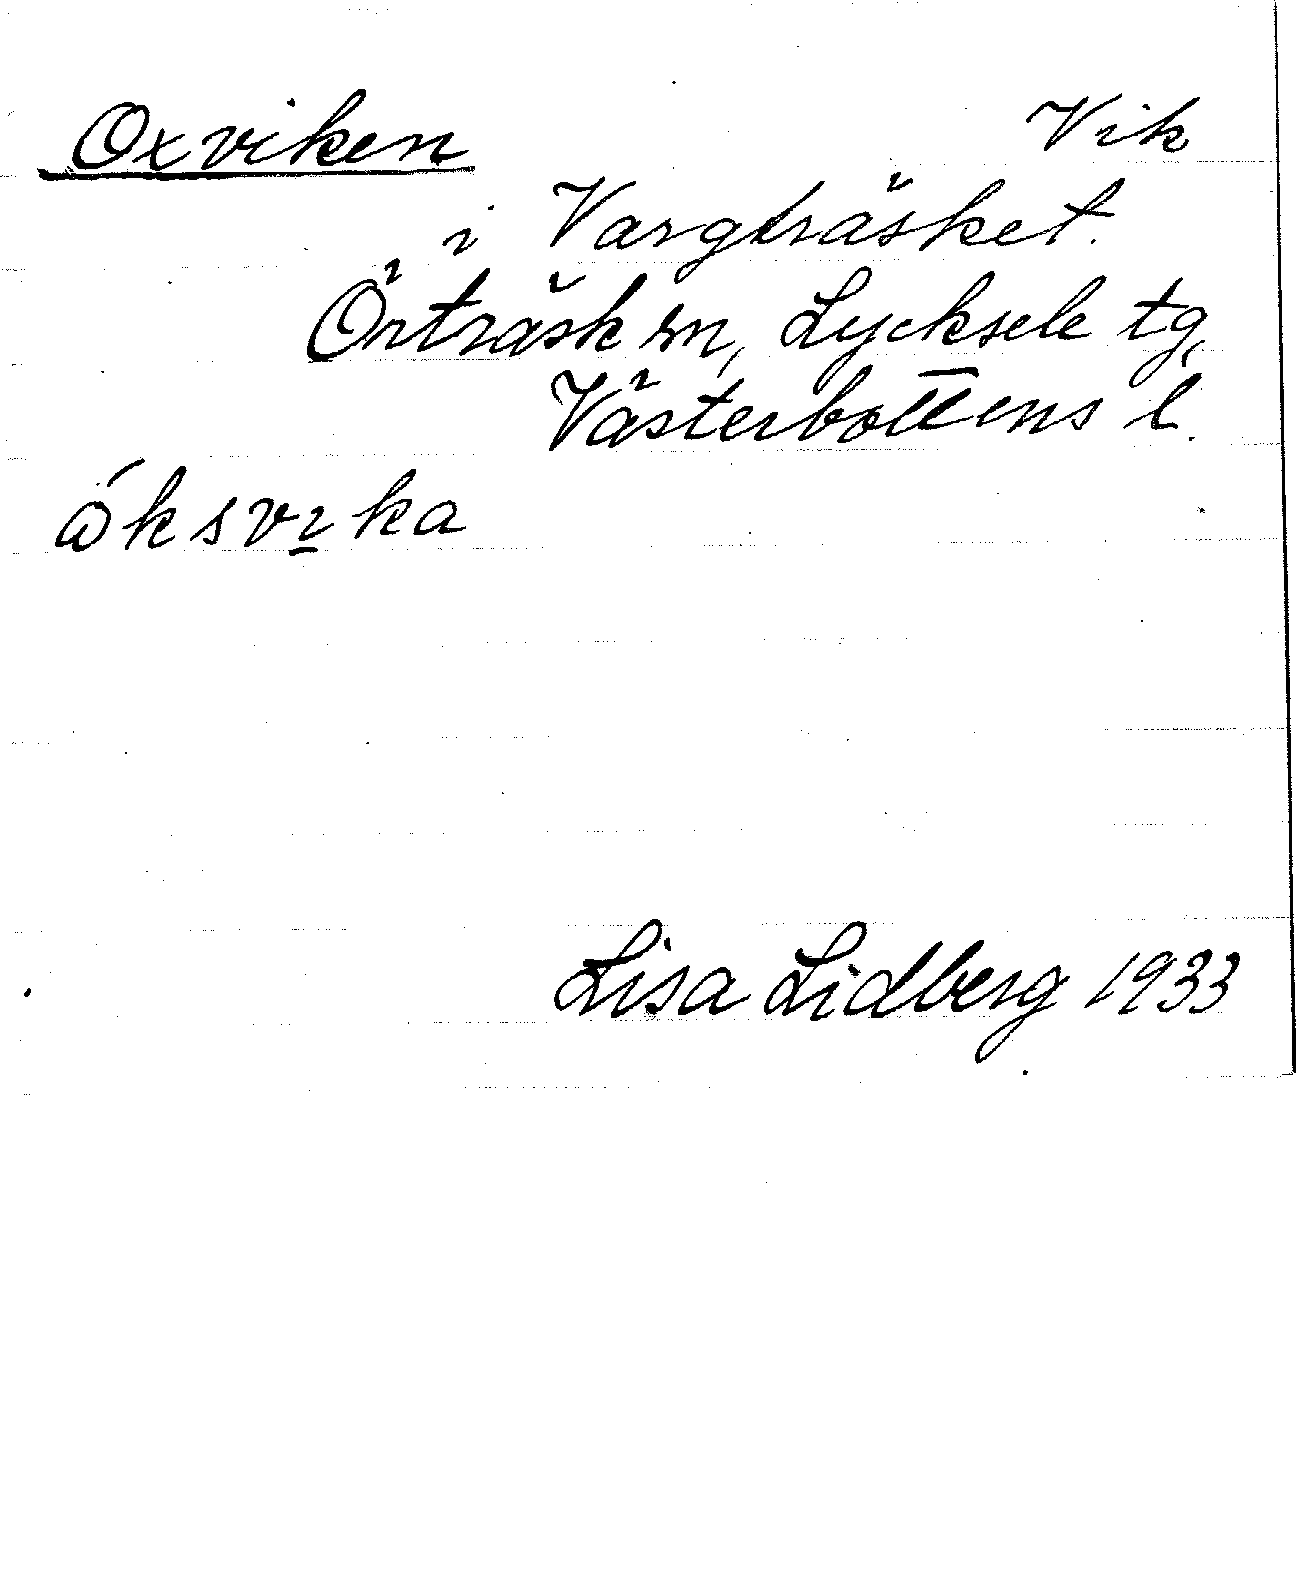 Oxviken Vik
i Vargträsket.
Örträsk sn, Lycksele tg,
Västerbottens l.
ώksvı̱ka
Lisa Lidberg 1933